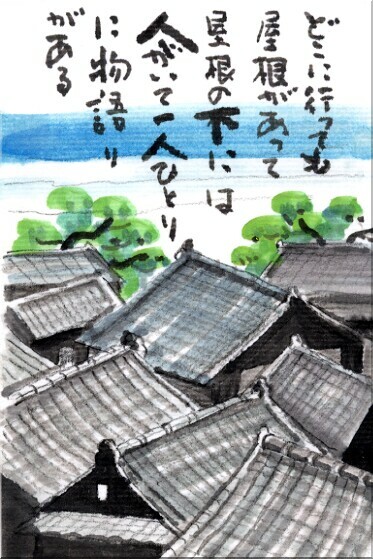 どこに行っても
屋根があって
屋根の下には
人がいて一人ひとり
に物語り
がある